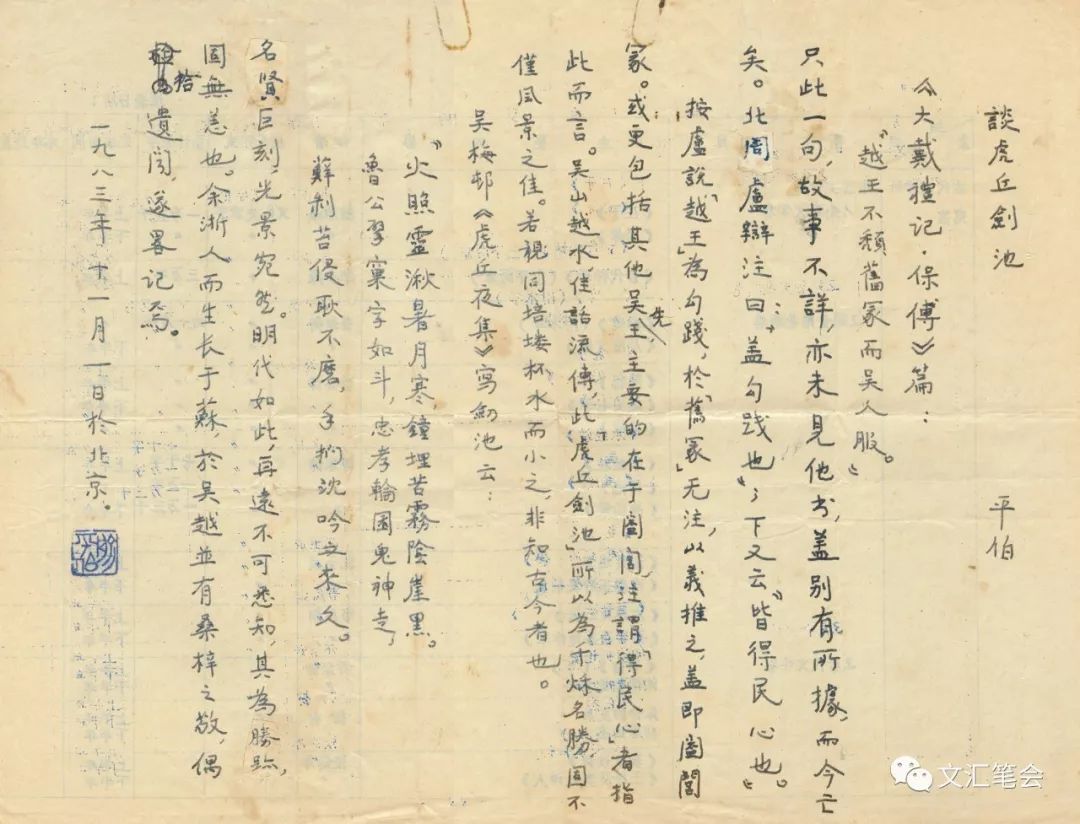 談虎丘劍池
平伯
《大戴禮記·保傅》篇：
“越王不頹舊冢而吳人服。”
只此一句，故事不詳，亦未見他书，盖别有所據，而今亡
矣。北周盧辯注曰：“盖勾践也”；下又云“皆得民心也”。
按盧說“越王”為勾踐，於“舊冢”无注，以義推之，盖即闔閭
冢。或更包括其他吳先王，主要的在于闔閭，注謂“得民心”者指
此而言。吴山越水，佳話流傳，此“虎丘劍池”所以為千秌名勝，固不
僅风景之佳。若視同培塿杯水而小之，非知古今者也。
吴梅邨《虎丘夜集》寫劍池云：
“火照靈湫暑月寒，鐘埋苦霧陰崖黑。
魯公擘窠字如斗，忠孝輪囷鬼神走，
蘚剥苔侵耿不磨，手捫沈吟立来久。
名賢巨刻，光景宛然。明代如此，再遠不可悉知，其為勝跡，
固無恙也。余浙人而生长于蘇，於吴越並有桑梓之敬，偶
拾遺闻，遂畧记焉。
一九八三年十一月一日於北京。
文汇笔会